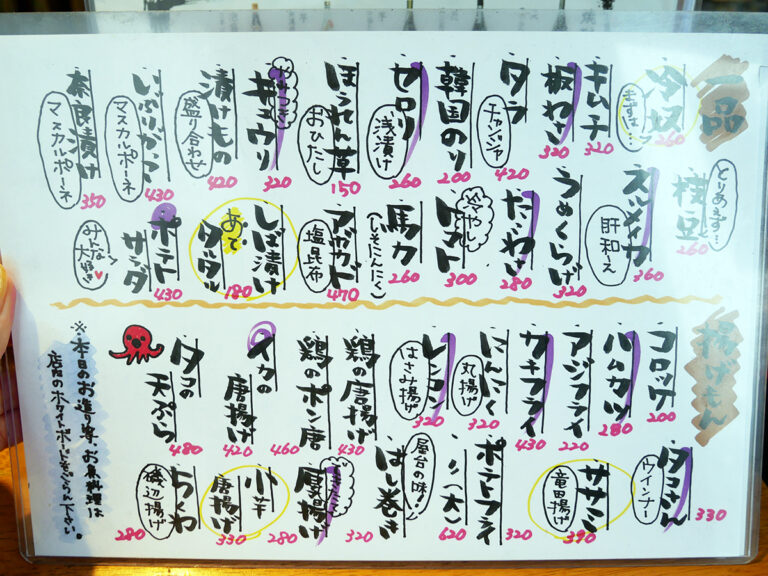 一品
冷奴
まずは…
260
キムチ
320
板わさ
320
タラ
チャンジャ
420
韓国のり
200
セロリ
浅漬け
260
ほうれん草
おひたし
150
やみつき
キュウリ
320
漬けもの
盛り合わせ
420
いぶりがっこ
マスカルポーネ
430
奈良漬け
マスカルポーネ
350
とりあえず…
枝豆
260
スルメイカ
肝和え
360
うめくらげ
320
たこわさ
280
冷やし
トマト
300
馬力
(しそにんにく)
260
アボガド
塩昆布
470
しば漬け
タルタル
あで
180
ポテト
サラダ
みんな大好き
430
揚げもん
コロッケ
200
ハムカツ
280
アジフライ
220
カキフライ
430
にんにく
丸揚げ
320
レンコン
はさみ揚げ
320
鶏の唐揚げ
430
鶏のポン唐
460
イカの
唐揚げ
420
タコの
天ぷら
480
タコさん
ウインナー
330
ササミ
竜田揚げ
390
ポテトフライ
320
〃(大)
620
はし巻き
屋台の味!
320
厚揚げ
280
小芋
唐揚げ
330
ちくわ
磯辺揚げ
280
※本日のお造り等、お魚料理は
店内のホワイトボードをごらん下さい。